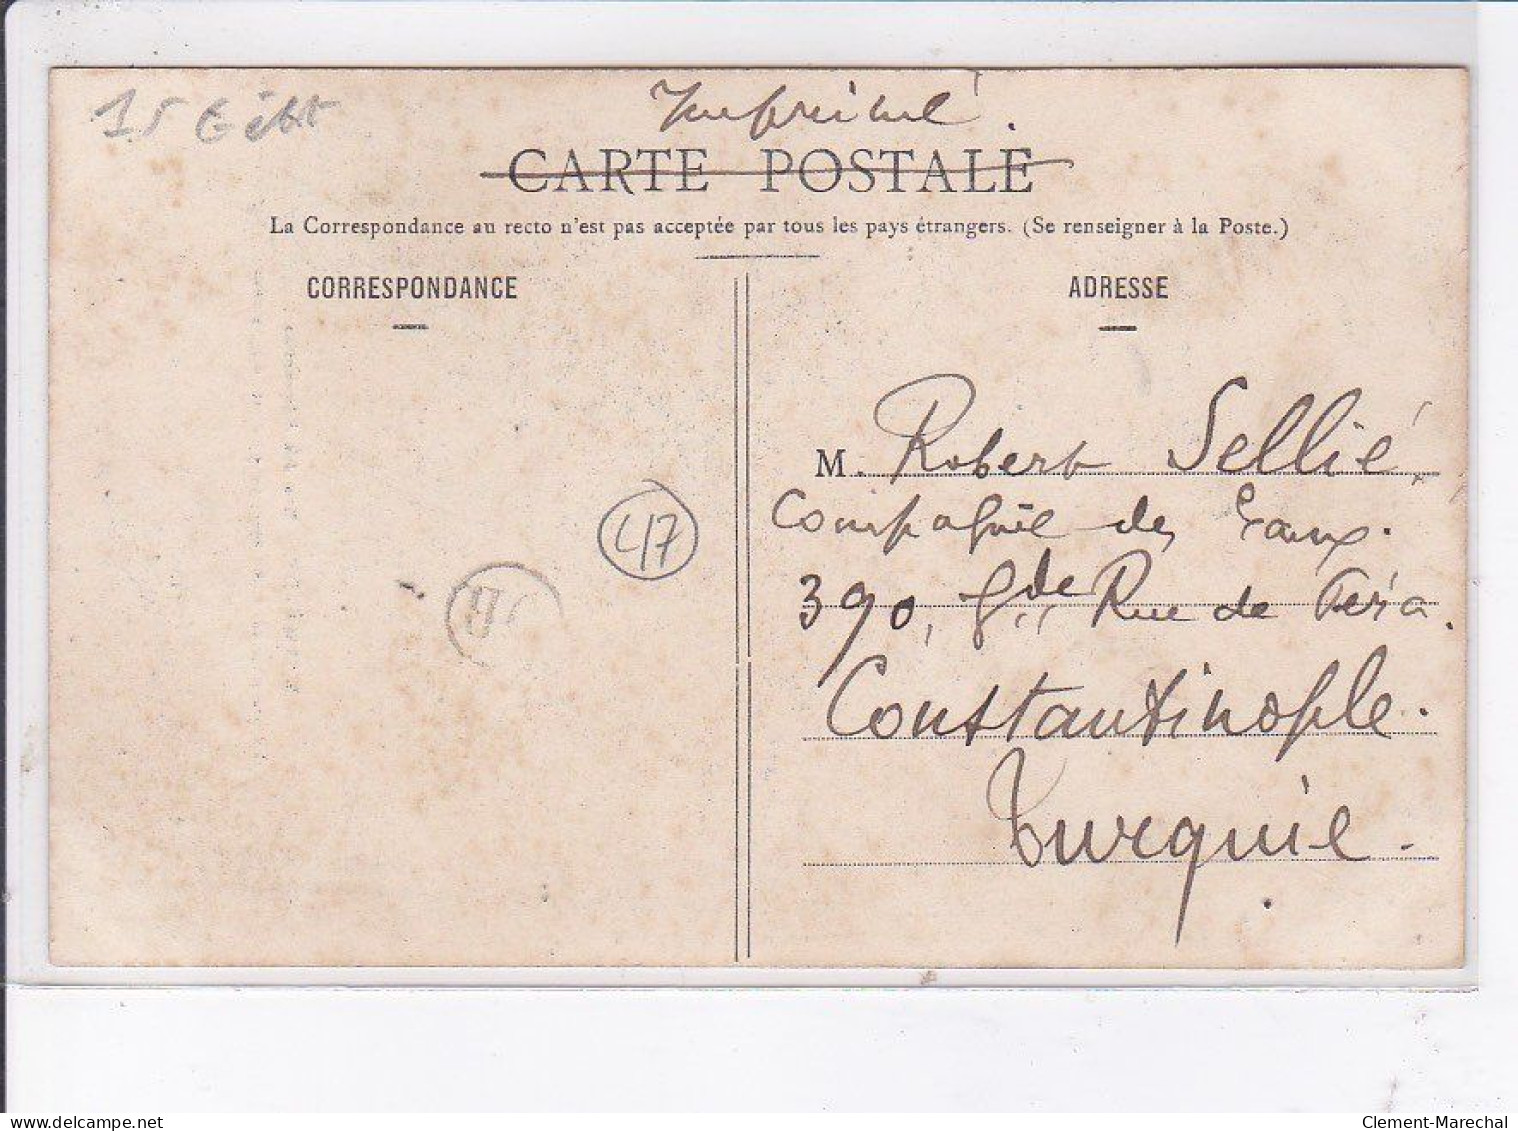 15 €
Imprimé.
CARTE POSTALE
La Correspondance au recto n'est pas acceptée par tous les pays étrangers. (Se renseigner à la Poste.)
CORRESPONDANCE
ADRESSE
M. Robert Sellié
Compagnie des Eaux.
390, Gde Rue de Péra.
Constantinople.
Turquie.
47
delcampe.net
Clement-Marechal